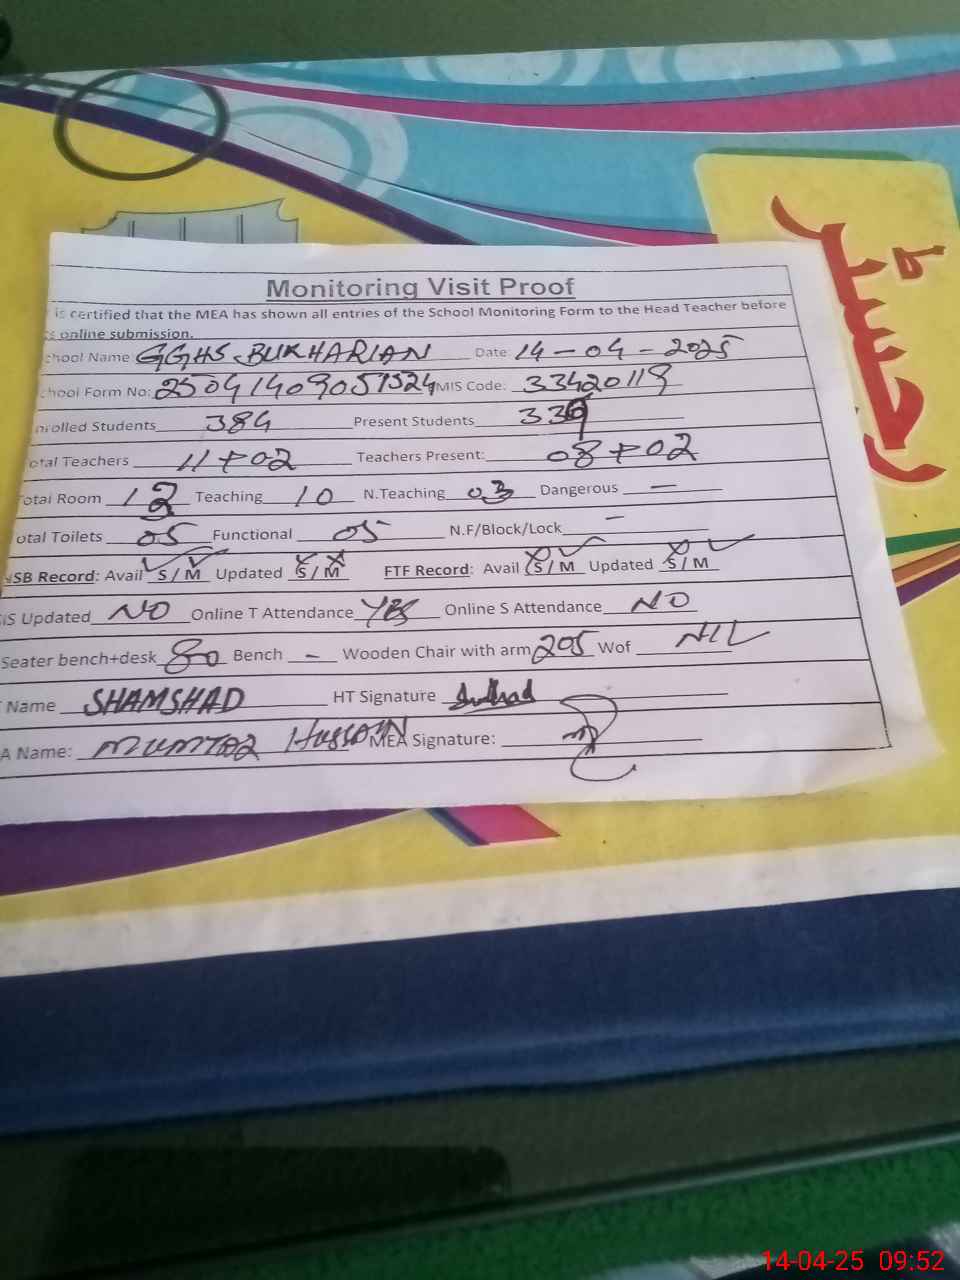 Monitoring Visit Proof
is certified that the MEA has shown all entries of the School Monitoring Form to the Head Teacher before
online submission.
chool Name GGHS BUKHARIAN Date: 14-04-2025
chool Form No: 25041409051524 MIS Code: 33420119
nrolled Students 384 Present Students
otal Teachers 11+02 Teachers Present: 08+02
otal Room Teaching 10 N.Teaching 03 Dangerous —
otal Toilets 05 Functional 05 N.F/Block/Lock —
NSB Record: Avail S / M Updated S / M FTF Record: Avail S / M Updated S / M
SiS Updated NO Online T Attendance YES Online S Attendance NO
Seater bench+desk 80 Bench - Wooden Chair with arm 205 Wof NIL
Name SHAMSHAD HT Signature
A Name: MUMTAZ HUSSAIN MEA Signature:
رجسٹر
14-04-25 09:52